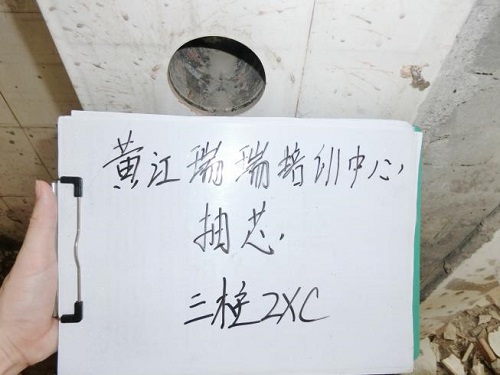 黄江瑞瑞培训中心
抽芯
三柱2XC